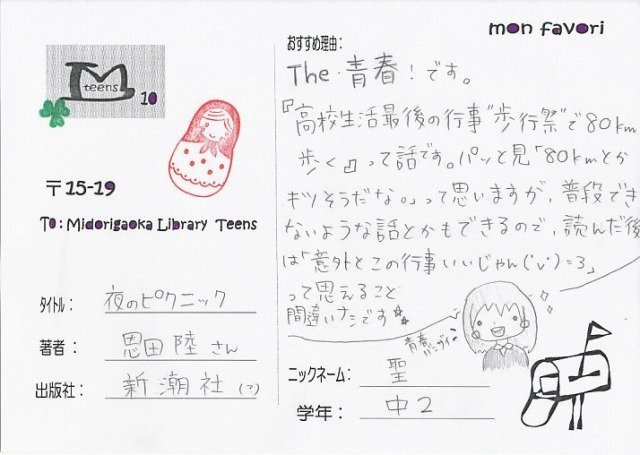 mon favori
teens
10
〒15-19
To: Midorigaoka Library Teens
タイトル: 夜のピクニック
著者: 恩田 陸 さん
出版社: 新潮社 (?)
おすすめ理由:
The・青春!です。
『高校生活最後の行事"歩行祭"で80km
歩く』って話です。パッと見「80kmとか
キツそうだな。」って思いますが、普段でき
ないような話とかもできるので、読んだ後
は「意外とこの行事いいじゃん('v')=3」
って思えること
間違いナシです☆
青春
ニックネーム: 聖
学年: 中2